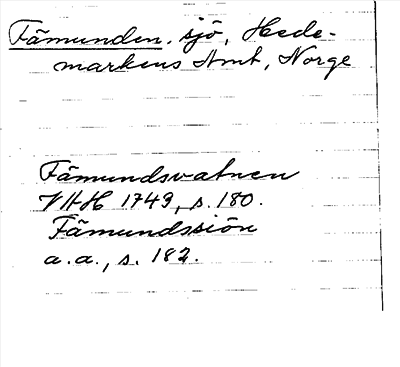 Fämunden, sjö, Hede-
markens Amt, Norge
Fämundsvatnen
VHH 1749, s. 180.
Fämundssiön
a.a., s. 182.